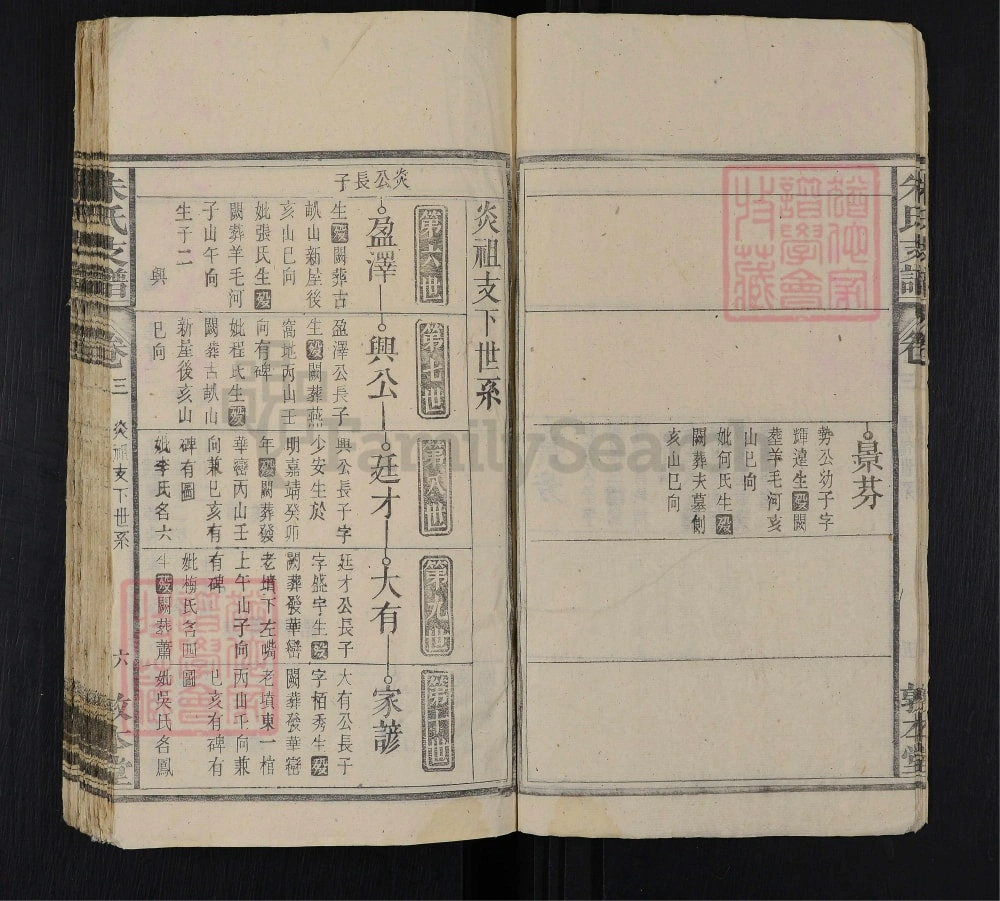 朱氏支譜
卷
敦本堂
景芬
勢公幼子字
輝遠生歿闕
葬羊毛河亥
山巳向
妣何氏生歿
闕葬夫墓側
亥山巳向
炎祖支下世系
第六世
第七世
第八世
第九世
第十世
炎公長子
盈澤
生歿闕葬古
畆山新屋後
亥山巳向
妣張氏生歿
闕葬羊毛河
子山午向
生子二
興
興公
盈澤公長子
生歿闕葬燕
窩地丙山壬
向有碑
妣程氏生歿
闕葬古畆山
新屋後亥山
巳向
廷才
興公長子字
少安生於
明嘉靖癸卯
年歿闕葬發
華巒丙山壬
向兼巳亥有
碑有圖
妣李氏名六
大有
廷才公長子
字盛宇生歿
闕葬發華巒
老墳下左嘴
上午山子向
有碑
妣梅氏名四圖
生歿闕葬蕭
家諺
大有公長子
字栢秀生歿
闕葬發華巒
老墳東一棺
丙山壬向兼
巳亥有碑有
圖
妣吳氏名鳳
朱氏支譜
卷三
炎祖支下世系
六
敦本堂
FamilySearch